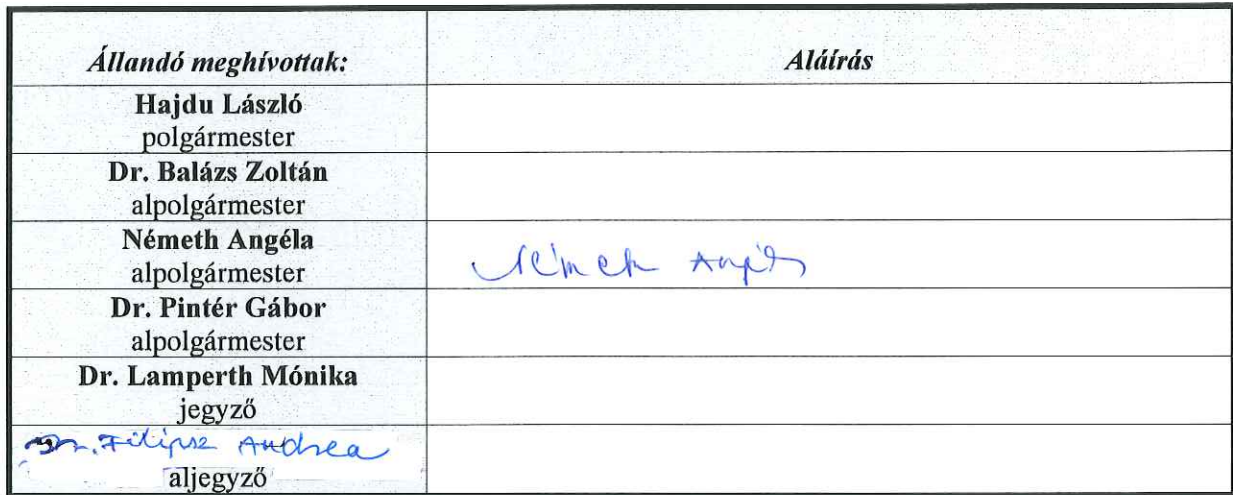 Állandó meghívottak: Aláírás
Hajdu László
polgármester
Dr. Balázs Zoltán
alpolgármester
Németh Angéla
alpolgármester
Németh Angéla
Dr. Pintér Gábor
alpolgármester
Dr. Lamperth Mónika
jegyző
Dr. Filipsz Andrea
aljegyző